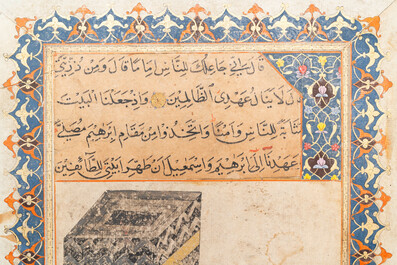 قَالَ إِنِّي جَاعِلُكَ لِلنَّاسِ إِمَامًا قَالَ وَمِنْ ذُرِّيَّتِي
قَالَ لَا يَنَالُ عَهْدِي الظَّالِمِينَ وَإِذْ جَعَلْنَا الْبَيْتَ
مَثَابَةً لِلنَّاسِ وَأَمْنًا وَاتَّخِذُوا مِنْ مَقَامِ إِبْرٰهِيمَ مُصَلًّى
عَهِدْنَا إِلَى إِبْرٰهِيمَ وَاِسْمٰعِيلَ اَنْ طَهِّرَا بَيْتِيَ لِلطَّائِفِينَ